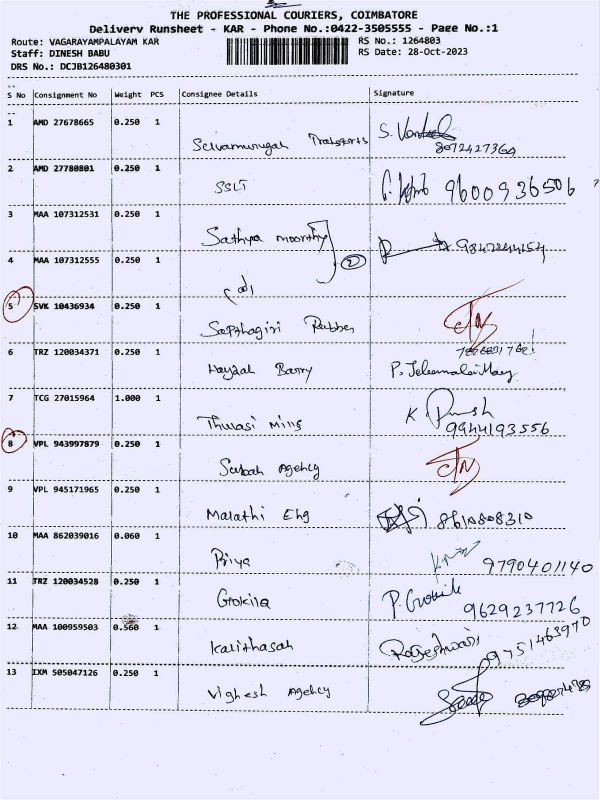 THE PROFESSIONAL COURIERS, COIMBATORE
Delivery Runsheet - KAR - Phone No.:0422-3505555 - Page No.:1
Route: VAGARAYAMPALAYAM KAR RS No.: 1264803
Staff: DINESH BABU RS Date: 28-Oct-2023
DRS No.: DCJB126480301
S No Consignment No Weight PCS Consignee Details Signature
1 AMD 27678665 0.250 1
Selvamurugan Transports S. 8072427364
2 AMD 27780801 0.250 1
SSLT 9600936506
3 MAA 107312531 0.250 1
Sathya moorthy
4 MAA 107312555 0.250 1 2
5 SVK 10436934 0.250 1
Sapthagiri Rubber
6 TRZ 120034371 0.250 1
Barry P.
7 TCG 27015964 1.000 1
Thulasi Mills K 9944193556
8 VPL 943997879 0.250 1
Agency
9 VPL 945171965 0.250 1
Malathi Eng 8610808310
10 MAA 862039016 0.060 1
Priya 9790401140
11 TRZ 120034528 0.250 1
Gokila P. 9629237726
12 MAA 100959503 0.560 1
Kalithasan Rajeshwari 9751463970
13 IXM 505047126 0.250 1
Vighesh Agency